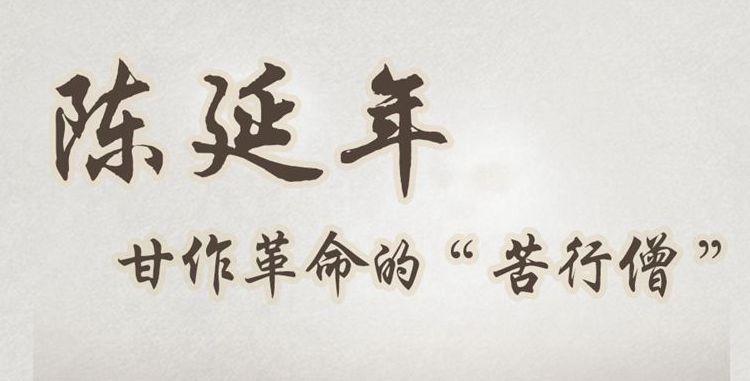 陈延年
甘作革命的“苦行僧”